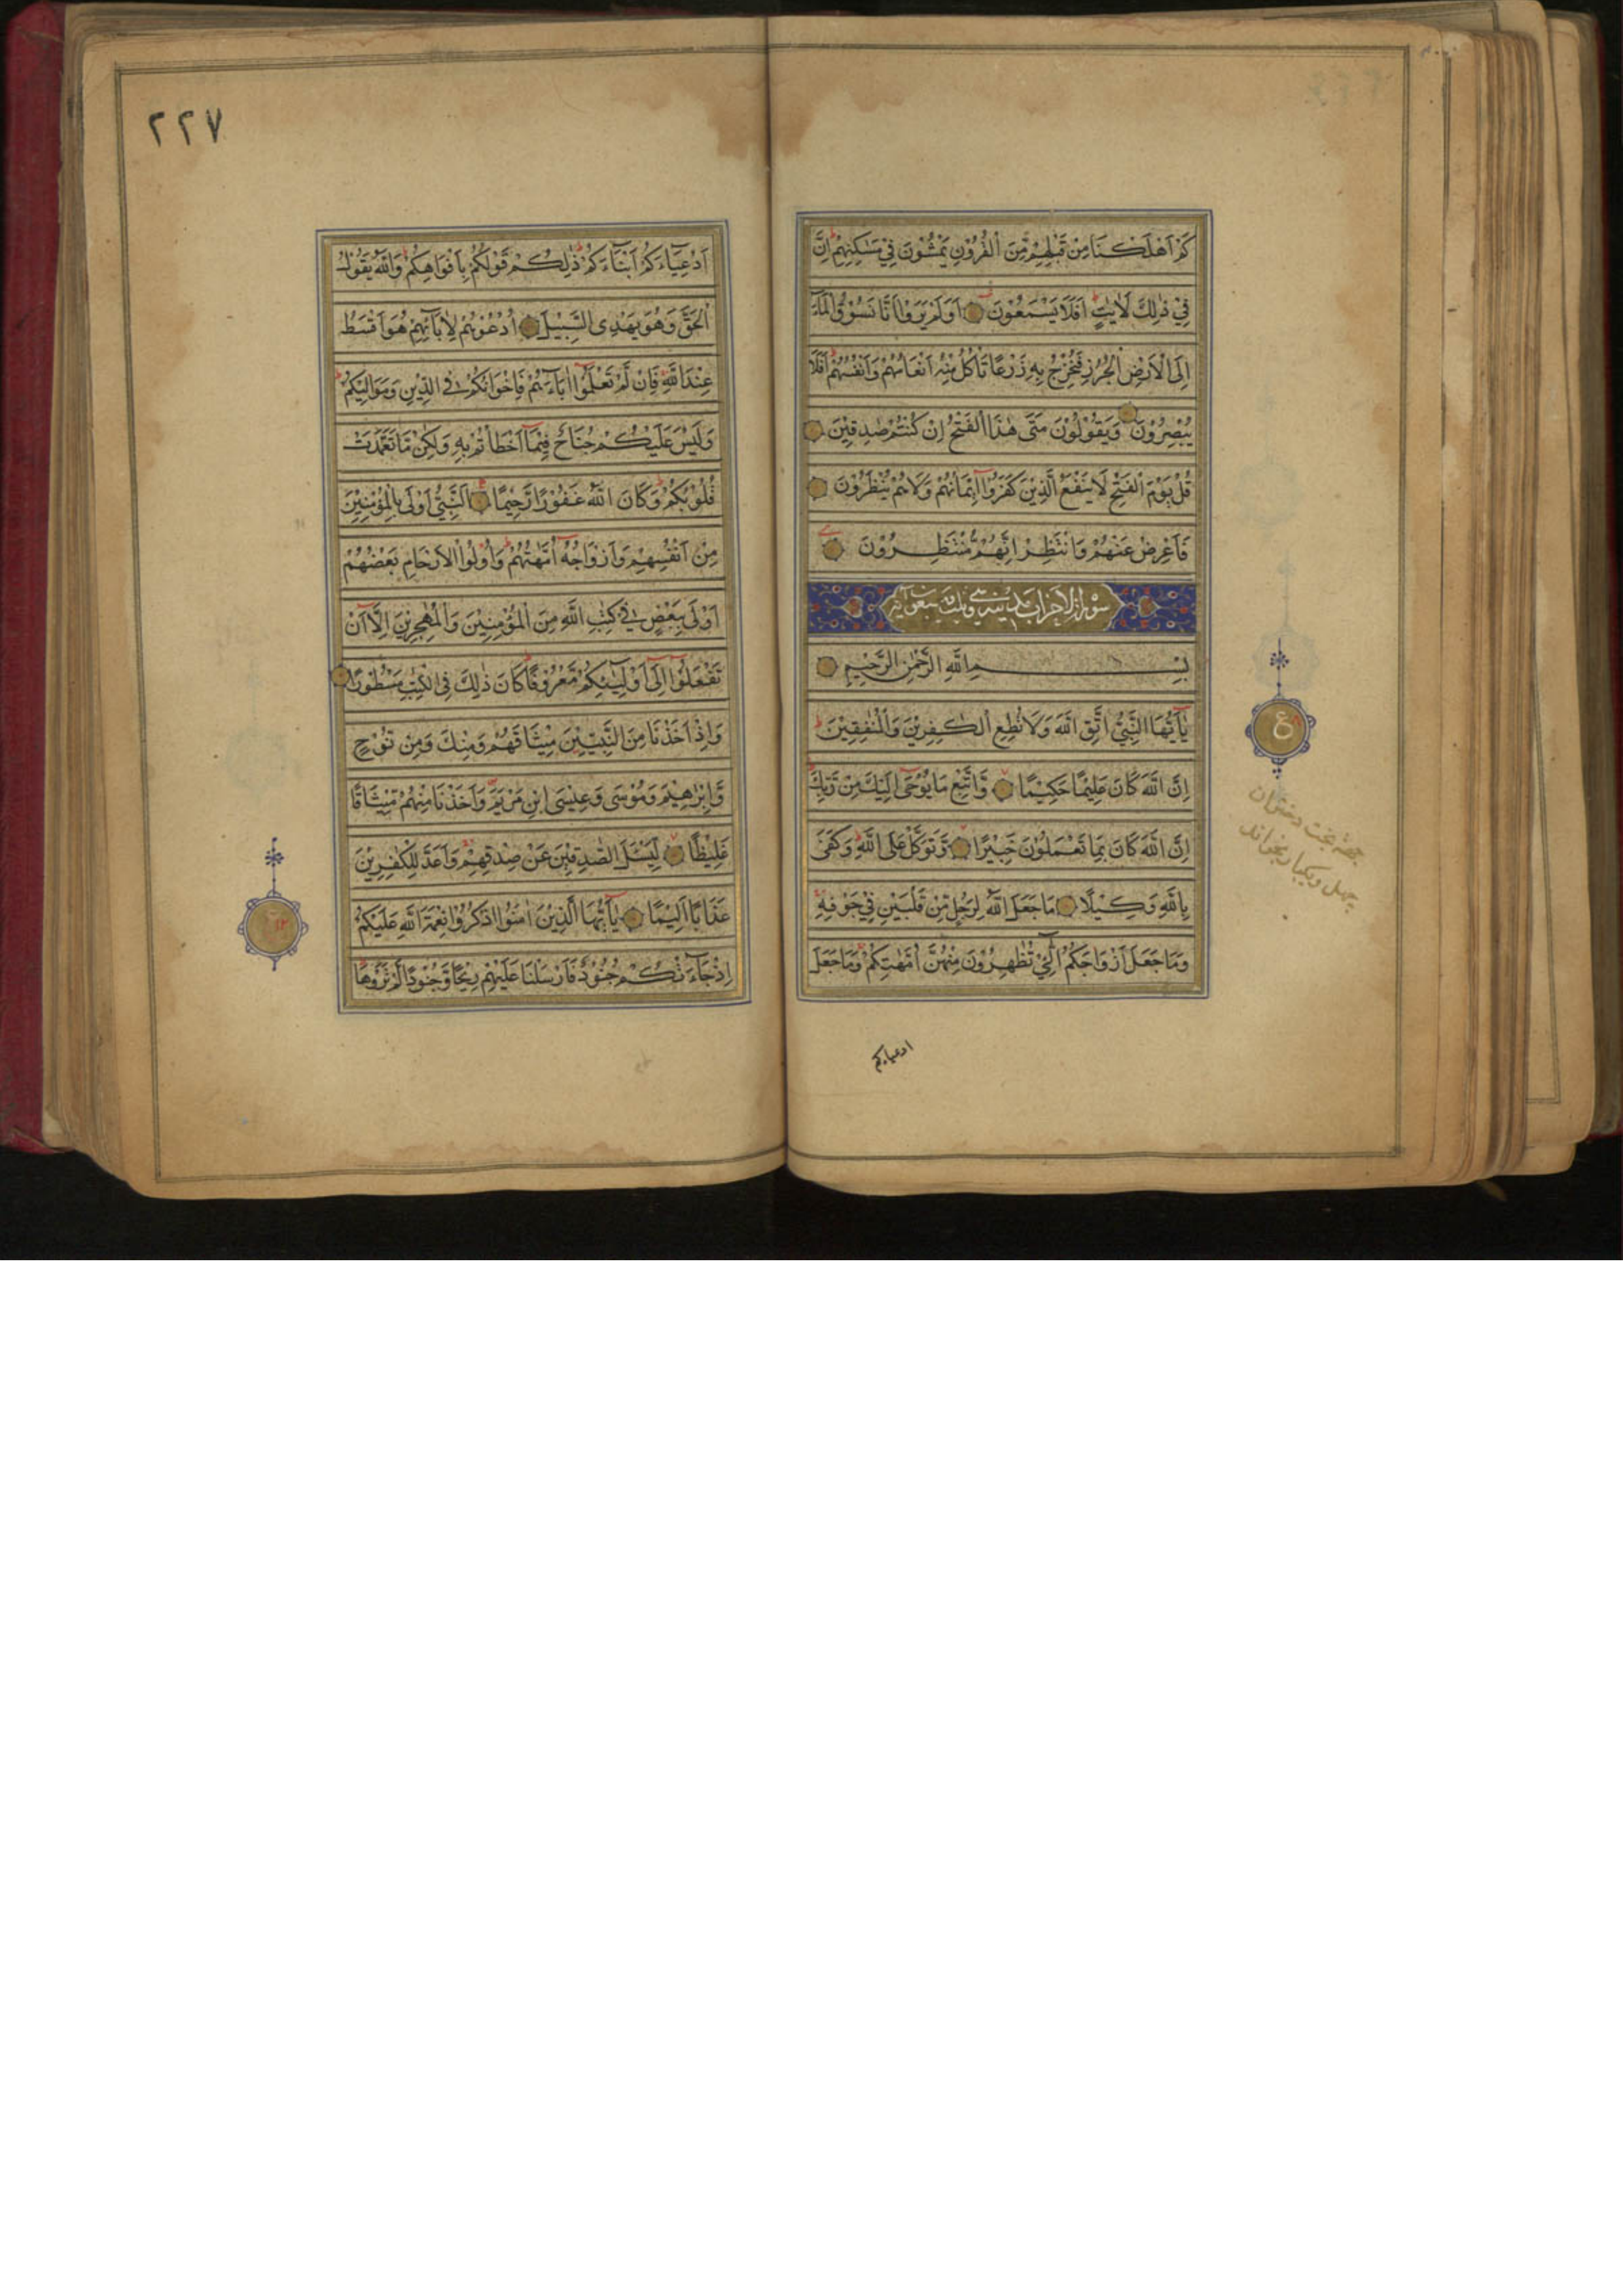 كَمْ اَهْلَكْنَا مِنْ قَبْلِهِمْ مِّنَ الْقُرُوْنِ يَمْشُوْنَ فِيْ مَسٰكِنِهِمْ ط اِنَّ
فِيْ ذٰلِكَ لَاٰيٰتٍ ط اَفَلَا يَسْمَعُوْنَ اَوَلَمْ يَرَوْا اَنَّا نَسُوْقُ الْمَآءَ
اِلَى الْاَرْضِ الْجُرُزِ فَنُخْرِجُ بِهٖ زَرْعًا تَاْكُلُ مِنْهُ اَنْعَامُهُمْ وَاَنْفُسُهُمْ ط اَفَلَا
يُبْصِرُوْنَ وَيَقُوْلُوْنَ مَتٰى هٰذَا الْفَتْحُ اِنْ كُنْتُمْ صٰدِقِيْنَ
قُلْ يَوْمَ الْفَتْحِ لَا يَنْفَعُ الَّذِيْنَ كَفَرُوْٓا اِيْمَانُهُمْ وَلَا هُمْ يُنْظَرُوْنَ
فَاَعْرِضْ عَنْهُمْ وَانْتَظِرْ اِنَّهُمْ مُّنْتَظِرُوْنَ
سورة الاحزاب مدينية وهي ثلث وسبعون آية
بِسْمِ اللّٰهِ الرَّحْمٰنِ الرَّحِيْمِ
يٰٓاَيُّهَا النَّبِيُّ اتَّقِ اللّٰهَ وَلَا تُطِعِ الْكٰفِرِيْنَ وَالْمُنٰفِقِيْنَ ط
اِنَّ اللّٰهَ كَانَ عَلِيْمًا حَكِيْمًا وَّاتَّبِعْ مَا يُوْحٰٓى اِلَيْكَ مِنْ رَّبِّكَ ط
اِنَّ اللّٰهَ كَانَ بِمَا تَعْمَلُوْنَ خَبِيْرًا وَّتَوَكَّلْ عَلَى اللّٰهِ ط وَكَفٰى
بِاللّٰهِ وَكِيْلًا مَا جَعَلَ اللّٰهُ لِرَجُلٍ مِّنْ قَلْبَيْنِ فِيْ جَوْفِهٖ
وَمَا جَعَلَ اَزْوَاجَكُمُ الّٰٓئِيْ تُظٰهِرُوْنَ مِنْهُنَّ اُمَّهٰتِكُمْ وَمَا جَعَلَ
ادعياءكم
ع
جهة بخت دختران
چهل ويكبار بخواند
٢٢٧
اَدْعِيَآءَكُمْ اَبْنَآءَكُمْ ط ذٰلِكُمْ قَوْلُكُمْ بِاَفْوَاهِكُمْ ط وَاللّٰهُ يَقُوْلُ
الْحَقَّ وَهُوَ يَهْدِى السَّبِيْلَ اُدْعُوْهُمْ لِاٰبَآئِهِمْ هُوَ اَقْسَطُ
عِنْدَ اللّٰهِ فَاِنْ لَّمْ تَعْلَمُوْٓا اٰبَآءَهُمْ فَاِخْوَانُكُمْ فِى الدِّيْنِ وَمَوَالِيْكُمْ ط
وَلَيْسَ عَلَيْكُمْ جُنَاحٌ فِيْمَآ اَخْطَاْتُمْ بِهٖ وَلٰكِنْ مَّا تَعَمَّدَتْ
قُلُوْبُكُمْ ط وَكَانَ اللّٰهُ غَفُوْرًا رَّحِيْمًا اَلنَّبِيُّ اَوْلٰى بِالْمُؤْمِنِيْنَ
مِنْ اَنْفُسِهِمْ وَاَزْوَاجُهٗٓ اُمَّهٰتُهُمْ ط وَاُولُوا الْاَرْحَامِ بَعْضُهُمْ
اَوْلٰى بِبَعْضٍ فِيْ كِتٰبِ اللّٰهِ مِنَ الْمُؤْمِنِيْنَ وَالْمُهٰجِرِيْنَ اِلَّآ اَنْ
تَفْعَلُوْٓا اِلٰٓى اَوْلِيٰٓئِكُمْ مَّعْرُوْفًا ط كَانَ ذٰلِكَ فِى الْكِتٰبِ مَسْطُوْرًا
وَاِذْ اَخَذْنَا مِنَ النَّبِيّٖنَ مِيْثَاقَهُمْ وَمِنْكَ وَمِنْ نُوْحٍ
وَّاِبْرٰهِيْمَ وَمُوْسٰى وَعِيْسَى ابْنِ مَرْيَمَ وَاَخَذْنَا مِنْهُمْ مِّيْثَاقًا
غَلِيْظًا لِيَسْئَلَ الصّٰدِقِيْنَ عَنْ صِدْقِهِمْ وَاَعَدَّ لِلْكٰفِرِيْنَ
عَذَابًا اَلِيْمًا يٰٓاَيُّهَا الَّذِيْنَ اٰمَنُوا اذْكُرُوْا نِعْمَةَ اللّٰهِ عَلَيْكُمْ
اِذْ جَآءَتْكُمْ جُنُوْدٌ فَاَرْسَلْنَا عَلَيْهِمْ رِيْحًا وَّجُنُوْدًا لَّمْ تَرَوْهَا ط